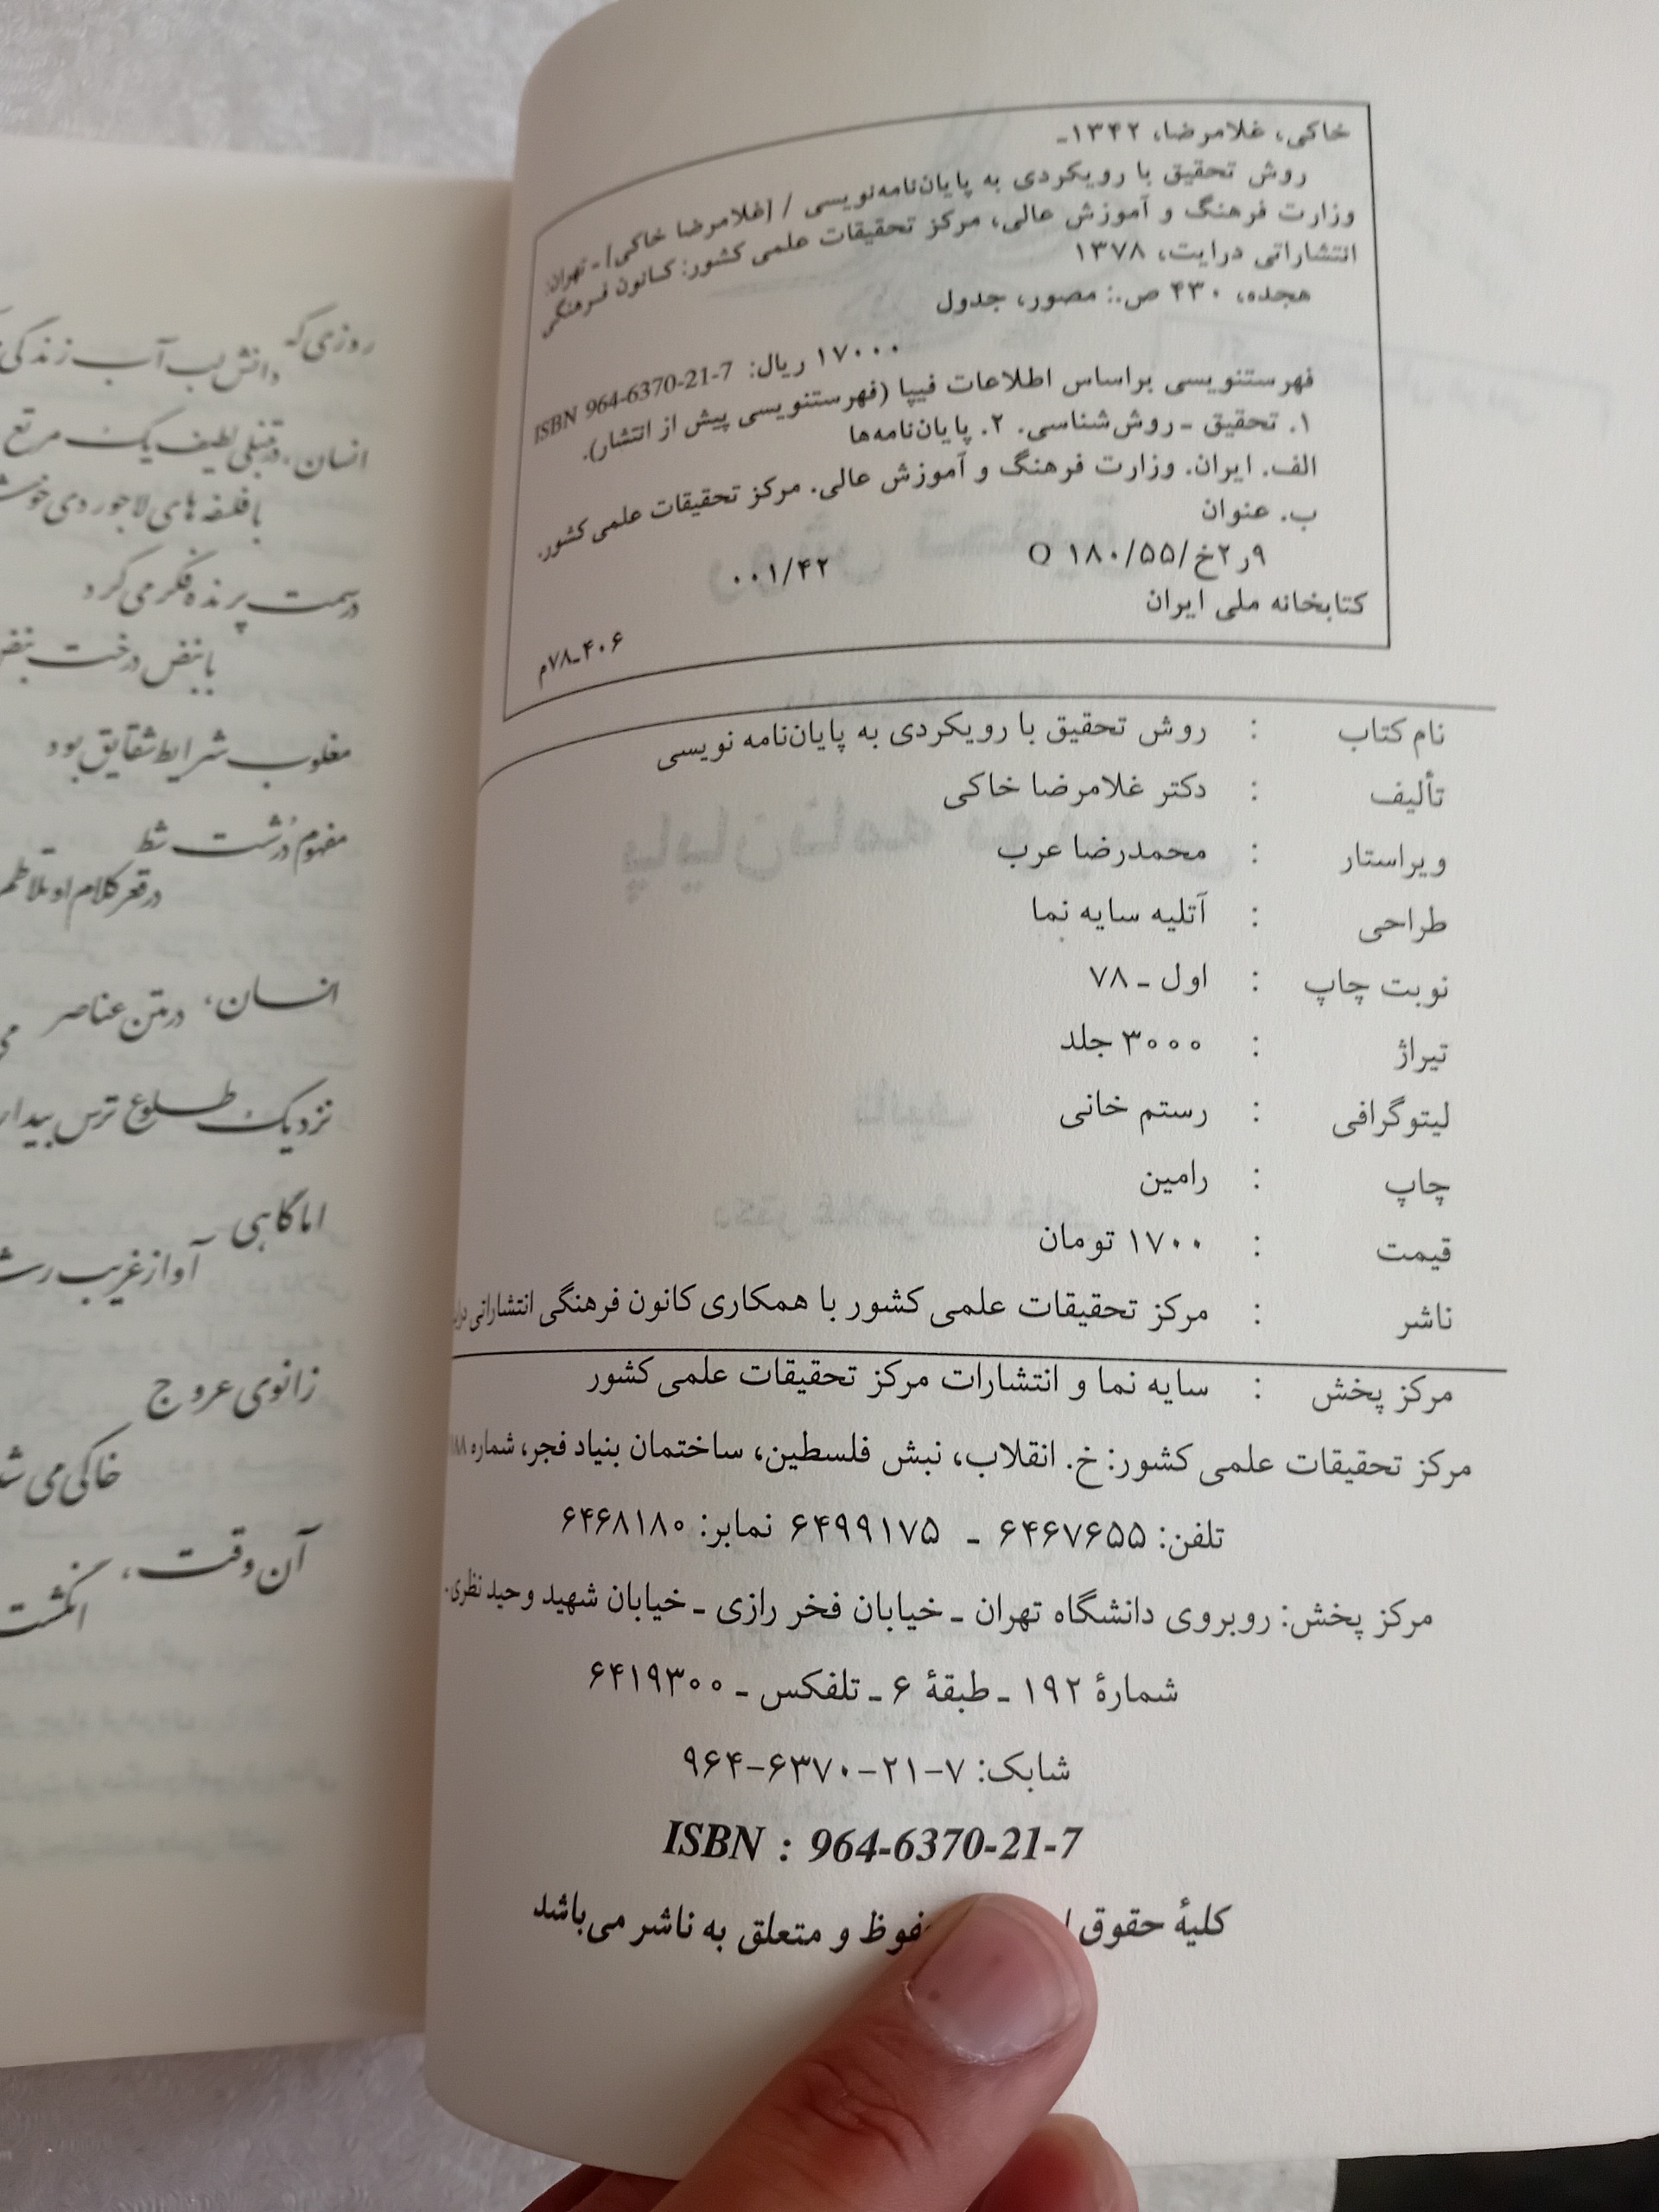 خاکی، غلامرضا، ۱۳۴۲ـ
روش تحقیق با رویکردی به پایان‌نامه‌نویسی / [غلامرضا خاکی] ـ تهران:
وزارت فرهنگ و آموزش عالی، مرکز تحقیقات علمی کشور: کانون فرهنگی
انتشاراتی درایت، ۱۳۷۸
هجده، ۴۳۰ ص.: مصور، جدول
۱۷۰۰۰ ریال: ISBN 964-6370-21-7
فهرستنویسی براساس اطلاعات فیپا (فهرستنویسی پیش از انتشار).
۱. تحقیق ـ روش‌شناسی. ۲. پایان‌نامه‌ها
الف. ایران. وزارت فرهنگ و آموزش عالی. مرکز تحقیقات علمی کشور.
ب. عنوان
۹ر۲خ/۵۵/۱۸۰ Q ۰۰۱/۴۲
کتابخانه ملی ایران
۴۰۶ـ۷۸م
نام کتاب : روش تحقیق با رویکردی به پایان‌نامه نویسی
تألیف : دکتر غلامرضا خاکی
ویراستار : محمدرضا عرب
طراحی : آتلیه سایه نما
نوبت چاپ : اول ـ ۷۸
تیراژ : ۳۰۰۰ جلد
لیتوگرافی : رستم خانی
چاپ : رامین
قیمت : ۱۷۰۰ تومان
ناشر : مرکز تحقیقات علمی کشور با همکاری کانون فرهنگی انتشاراتی
مرکز پخش : سایه نما و انتشارات مرکز تحقیقات علمی کشور
مرکز تحقیقات علمی کشور: خ. انقلاب، نبش فلسطین، ساختمان بنیاد فجر، شماره
تلفن: ۶۴۶۷۶۵۵ ـ ۶۴۹۹۱۷۵ نمابر: ۶۴۶۸۱۸۰
مرکز پخش: روبروی دانشگاه تهران ـ خیابان فخر رازی ـ خیابان شهید وحید نظری
شمارۀ ۱۹۲ ـ طبقۀ ۶ ـ تلفکس ـ ۶۴۱۹۳۰۰
شابک: ۷-۲۱-۶۳۷۰-۹۶۴
ISBN : 964-6370-21-7
کلیۀ حقوق و متعلق به ناشر می‌باشد
روزی که
دانش لب آب زندگی
انسان، در تنبلی لطیف یک مرتع
با فلسفه های لاجوردی
در سمت پرنده فکر می کرد
با نبض درخت
مغلوب شرایط شقایق بود
مفهوم درشت شط
در قعر کلام او
انسان، در متن عناصر
نزدیک طلوع ترس
اما گاهی
آواز غریب
زانوی عروج
خاکی می
آن وقت،
انگشت